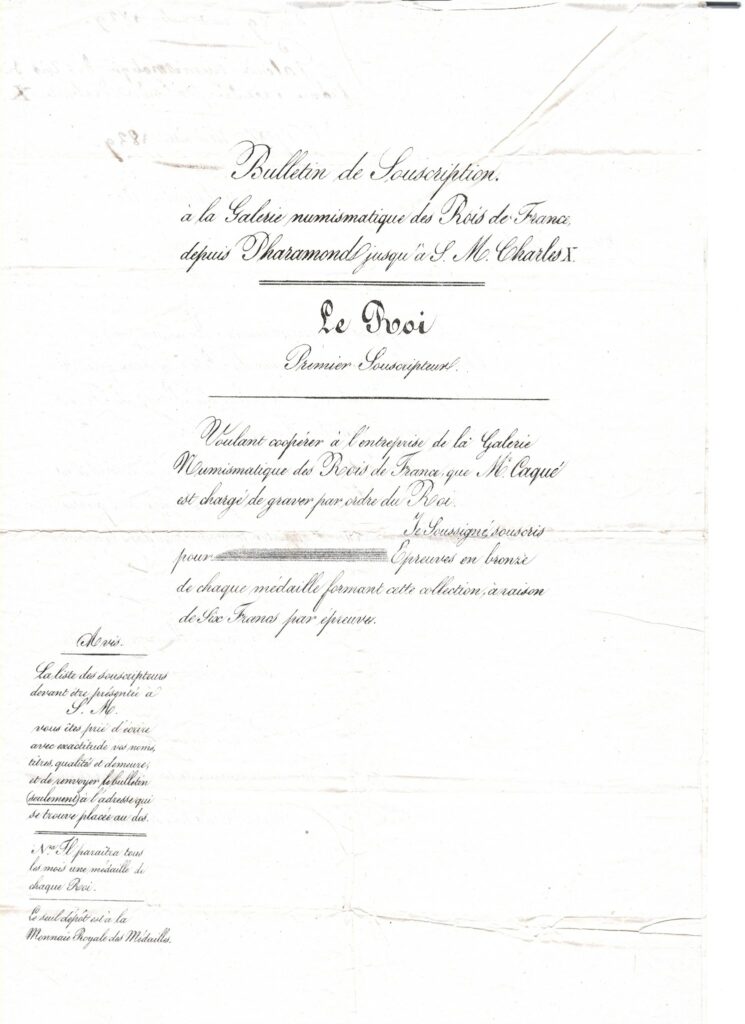 Bulletin de Souscription.
à la Galerie numismatique des Rois de France,
depuis Pharamond jusqu'à S. M. Charles X.
Le Roi
Premier Souscripteur.
Voulant coopérer à l'entreprise de la Galerie
Numismatique des Rois de France, que Mr. Caqué
est chargé de graver par ordre du Roi.
Je Soussigné souscris
pour Epreuves en bronze
de chaque médaille formant cette collection, à raison
de Six Francs par épreuve.
Avis.
La liste des souscripteurs
devant être présentée à
S. M.
vous êtes prié d'écrire
avec exactitude vos noms,
titres, qualité et demeure,
et de renvoyer le bulletin
(seulement) à l'adresse qui
se trouve placée au dos.
Nta. Il paraîtra tous
les mois une médaille de
chaque Roi.
Le seul dépôt est à la
Monnaie Royale des Médailles.